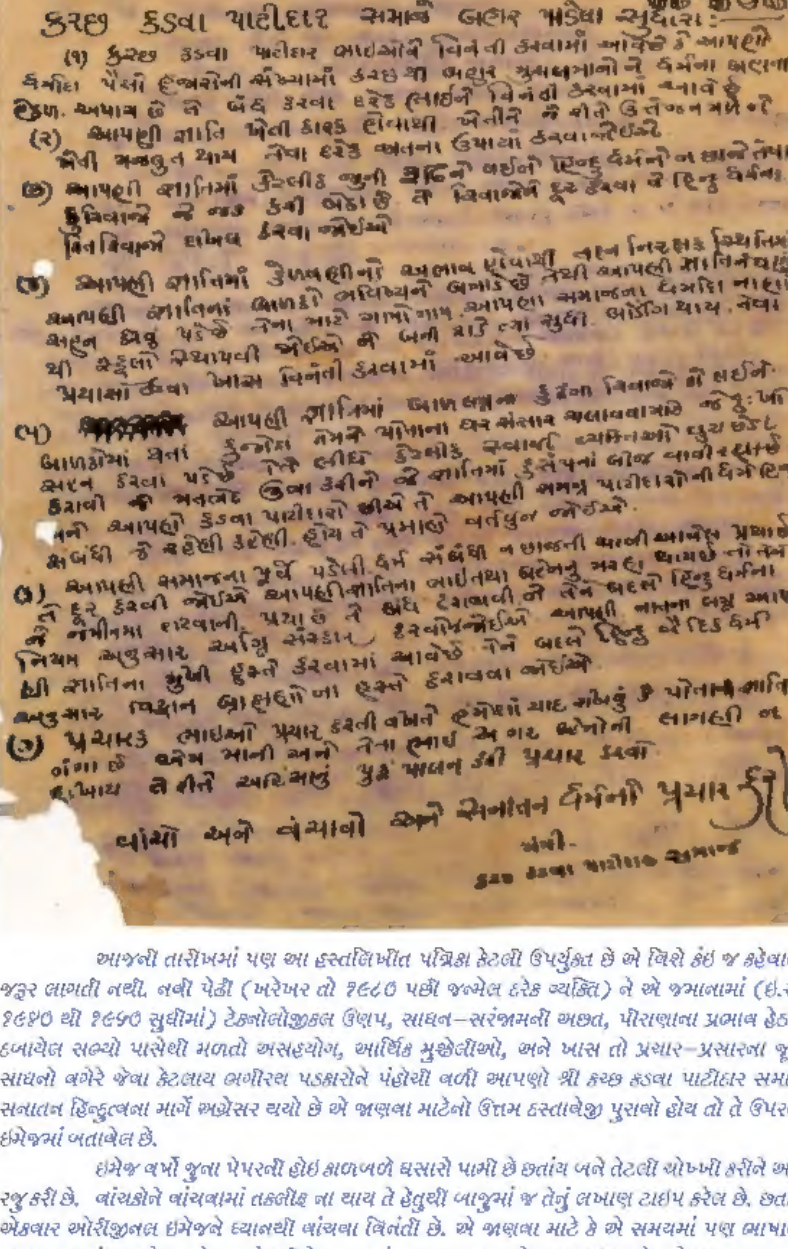 કચ્છ કડવા પાટીદાર સમાજે બહાર પાડેલા સુધારા:-
(૧) કચ્છ કડવા પાટીદાર ભાઈઓને વિનંતી કરવામાં આવે છે કે આપણી
ધર્માદા પૈસો હજારોની સંખ્યામાં કચ્છથી બહાર મુસલમાનો ને ધર્મના બહાના
હેઠળ અપાય છે તે બંધ કરવા દરેક ભાઈને વિનંતી કરવામાં આવે છે
(૨) આપણી જ્ઞાતિ ખેતી કારક હોવાથી ખેતીને જે રીતે ઉત્તેજન મળે ને
ખેતી મજબુત થાય તેવા દરેક જાતના ઉપાયો કરવા જોઈએ
(૩) આપણી જ્ઞાતિમાં કેટલીક જુની રૂઢિને લઈને હિન્દુ ધર્મને ન છાજે તેવા
કુરિવાજો જે જડ કરી બેઠા છે તે રિવાજોને દૂર કરવા ને હિન્દુ ધર્મના
રિતરિવાજો દાખલ કરવા જોઈએ
(૪) આપણી જ્ઞાતિમાં કેળવણીનો અભાવ હોવાથી તદન નિરક્ષક સ્થિતિમાં
આપણી જ્ઞાતિનાં બાળકો ભવિષ્યને બગાડે છે તેથી આપણી જ્ઞાતિને ઘણું
સહન કરવું પડે છે તેના માટે ગામો ગામ આપણા સમાજના ધર્માદા નાણાં
થી સ્કુલો સ્થાપવી જોઈએ ને બની શકે ત્યાં સુધી બોર્ડીંગ થાય તેવા
પ્રયાસો કરવા ખાસ વિનંતી કરવામાં આવે છે
(૫) આપણી જ્ઞાતિમાં બાળ લગ્નના કુઢંગા રિવાજો ને લઈને
બાળકોમાં થતાં કજોડા તેમને પોતાના ઘર સંસાર ચલાવવા માટે જે દુઃખો
સહન કરવા પડે છે તેને લીધે કેટલીક સ્વાર્થી વ્યક્તિઓ છુટા છેડા
કરાવી ને મતભેદ ઉભા કરીને જે જ્ઞાતિમાં કુસંપનાં બીજ વાવી રહ્યા છે
અને આપણે કડવા પાટીદારો છીએ તે આપણી સમગ્ર પાટીદારોની ધર્મ હિત
સંબંધી જે રહેણી કરેણી હોય તે પ્રમાણે વર્તવુંજ જોઈએ.
(૬) આપણી સમાજના પૂર્વે પડેલી ધર્મ સંબંધી ન છાજતી ચાલી આવેલ પ્રથા છે
તે દૂર કરવી જોઈએ આપણી જ્ઞાતિના ભાઈ તથા બહેનનું મરણ થાય છે તો તેને
જે જમીનમાં દાટવાની પ્રથા છે તે બંધ કરાવવી ને તેને બદલે હિન્દુ ધર્મના
નિયમ અનુસાર અગ્નિ સંસ્કાર કરવો જોઈએ આપણી નાતના લગ્ન આપ
ણી જ્ઞાતિના મુખી હસ્તે કરવામાં આવે છે તેને બદલે હિન્દુ વૈદિક ધર્મ
અનુસાર વિદ્વાન બ્રાહ્મણોના હસ્તે કરાવવા જોઈએ
(૭) પ્રચારક ભાઈઓ પ્રચાર કરતી વખતે હંમેશાં યાદ રાખવું કે પોતાની જ્ઞાતિ
ગંગા છે એમ માની અને તેના ભાઈ અગર બહેનોની લાગણી ન
દુઃખાય તે રીતે અહિંસાનું પુરૂ પાલન કરી પ્રચાર કરવો
વાંચો અને વંચાવો અને સનાતન ધર્મનો પ્રચાર કરો
મંત્રી-
કચ્છ કડવા પાટીદાર સમાજ
આજની તારીખમાં પણ આ હસ્તલિખીત પત્રિકા કેટલી ઉપર્યુક્ત છે એ વિશે કંઇ જ કહેવાની
જરૂર લાગતી નથી. નવી પેઢી (ખરેખર તો ૧૯૮૦ પછી જન્મેલ દરેક વ્યક્તિ) ને એ જમાનામાં (ઇ.સ
૧૯૪૦ થી ૧૯૫૦ સુધીમાં) ટેક્નોલોજીકલ ઉણપ, સાધન-સરંજામની અછત, પીરાણાના પ્રભાવ હેઠળ
દબાયેલ સભ્યો પાસેથી મળતો અસહયોગ, આર્થિક મુશ્કેલીઓ, અને ખાસ તો પ્રચાર-પ્રસારના જૂ
સાધનો વગેરે જેવા કેટલાય ભગીરથ પડકારોને પંહોચી વળી આપણો શ્રી કચ્છ કડવા પાટીદાર સમા
સનાતન હિન્દુત્વના માર્ગે અગ્રેસર થયો છે એ જાણવા માટેનો ઉત્તમ દસ્તાવેજી પુરાવો હોય તો તે ઉપર
ઇમેજમાં બતાવેલ છે.
ઇમેજ વર્ષો જુના પેપરની હોઇ કાળબળે ઘસારો પામી છે છતાંય બને તેટલી ચોખ્ખી કરીને અ
રજુ કરી છે. વાંચકોને વાંચવામાં તકલીફ ના થાય તે હેતુથી બાજુમાં જ તેનું લખાણ ટાઇપ કરેલ છે. છતા
એકવાર ઓરીજીનલ ઇમેજને ધ્યાનથી વાંચવા વિનંતી છે. એ જાણવા માટે કે એ સમયમાં પણ ભાષા